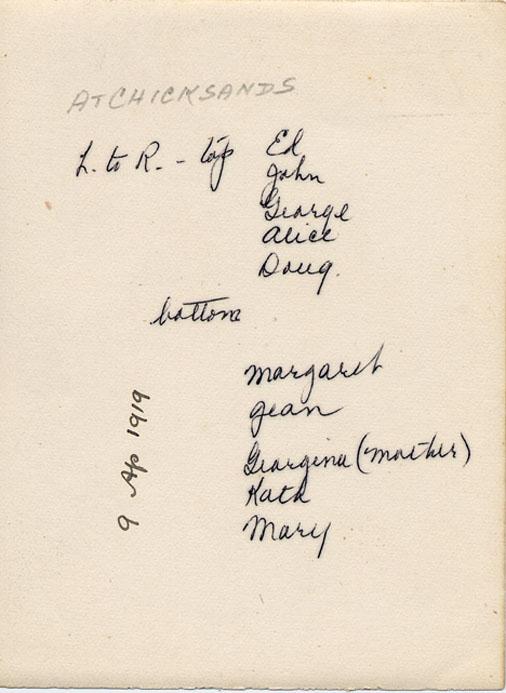 AT CHICKSANDS
L. to R. - top Ed
John
George
Alice
Doug.
bottom
Margaret
Jean
Georgina (mother)
Kate
Mary
9 Ap 1919